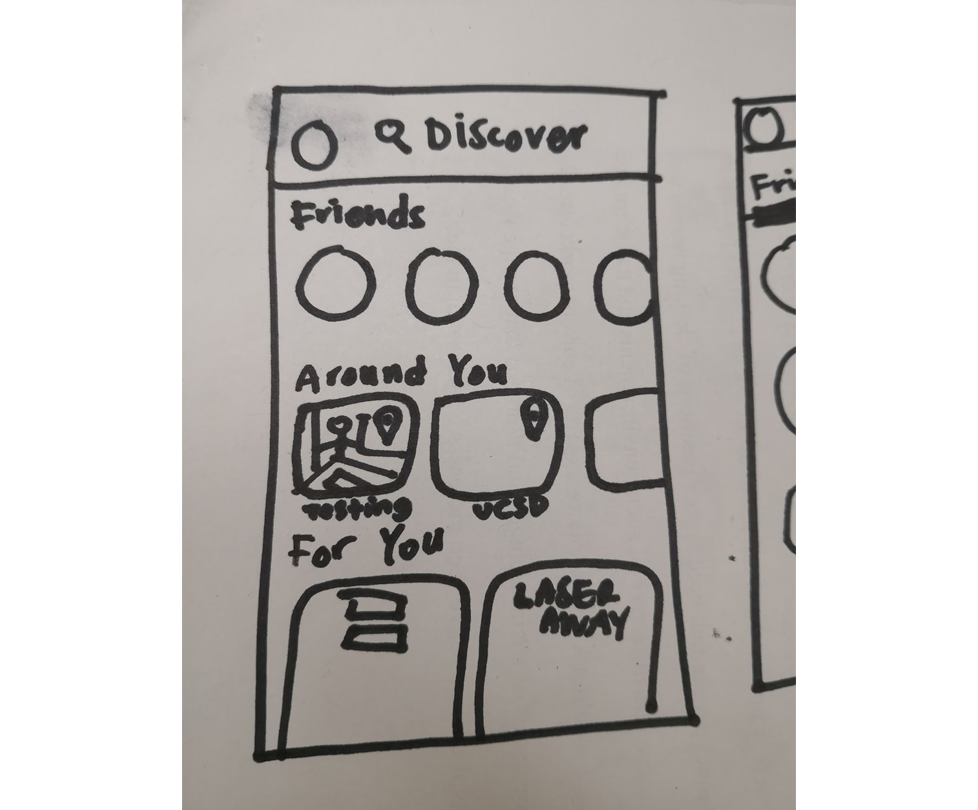 Discover
Friends
Around You
Testing
UCSD
For You
LASER
AWAY
Fri